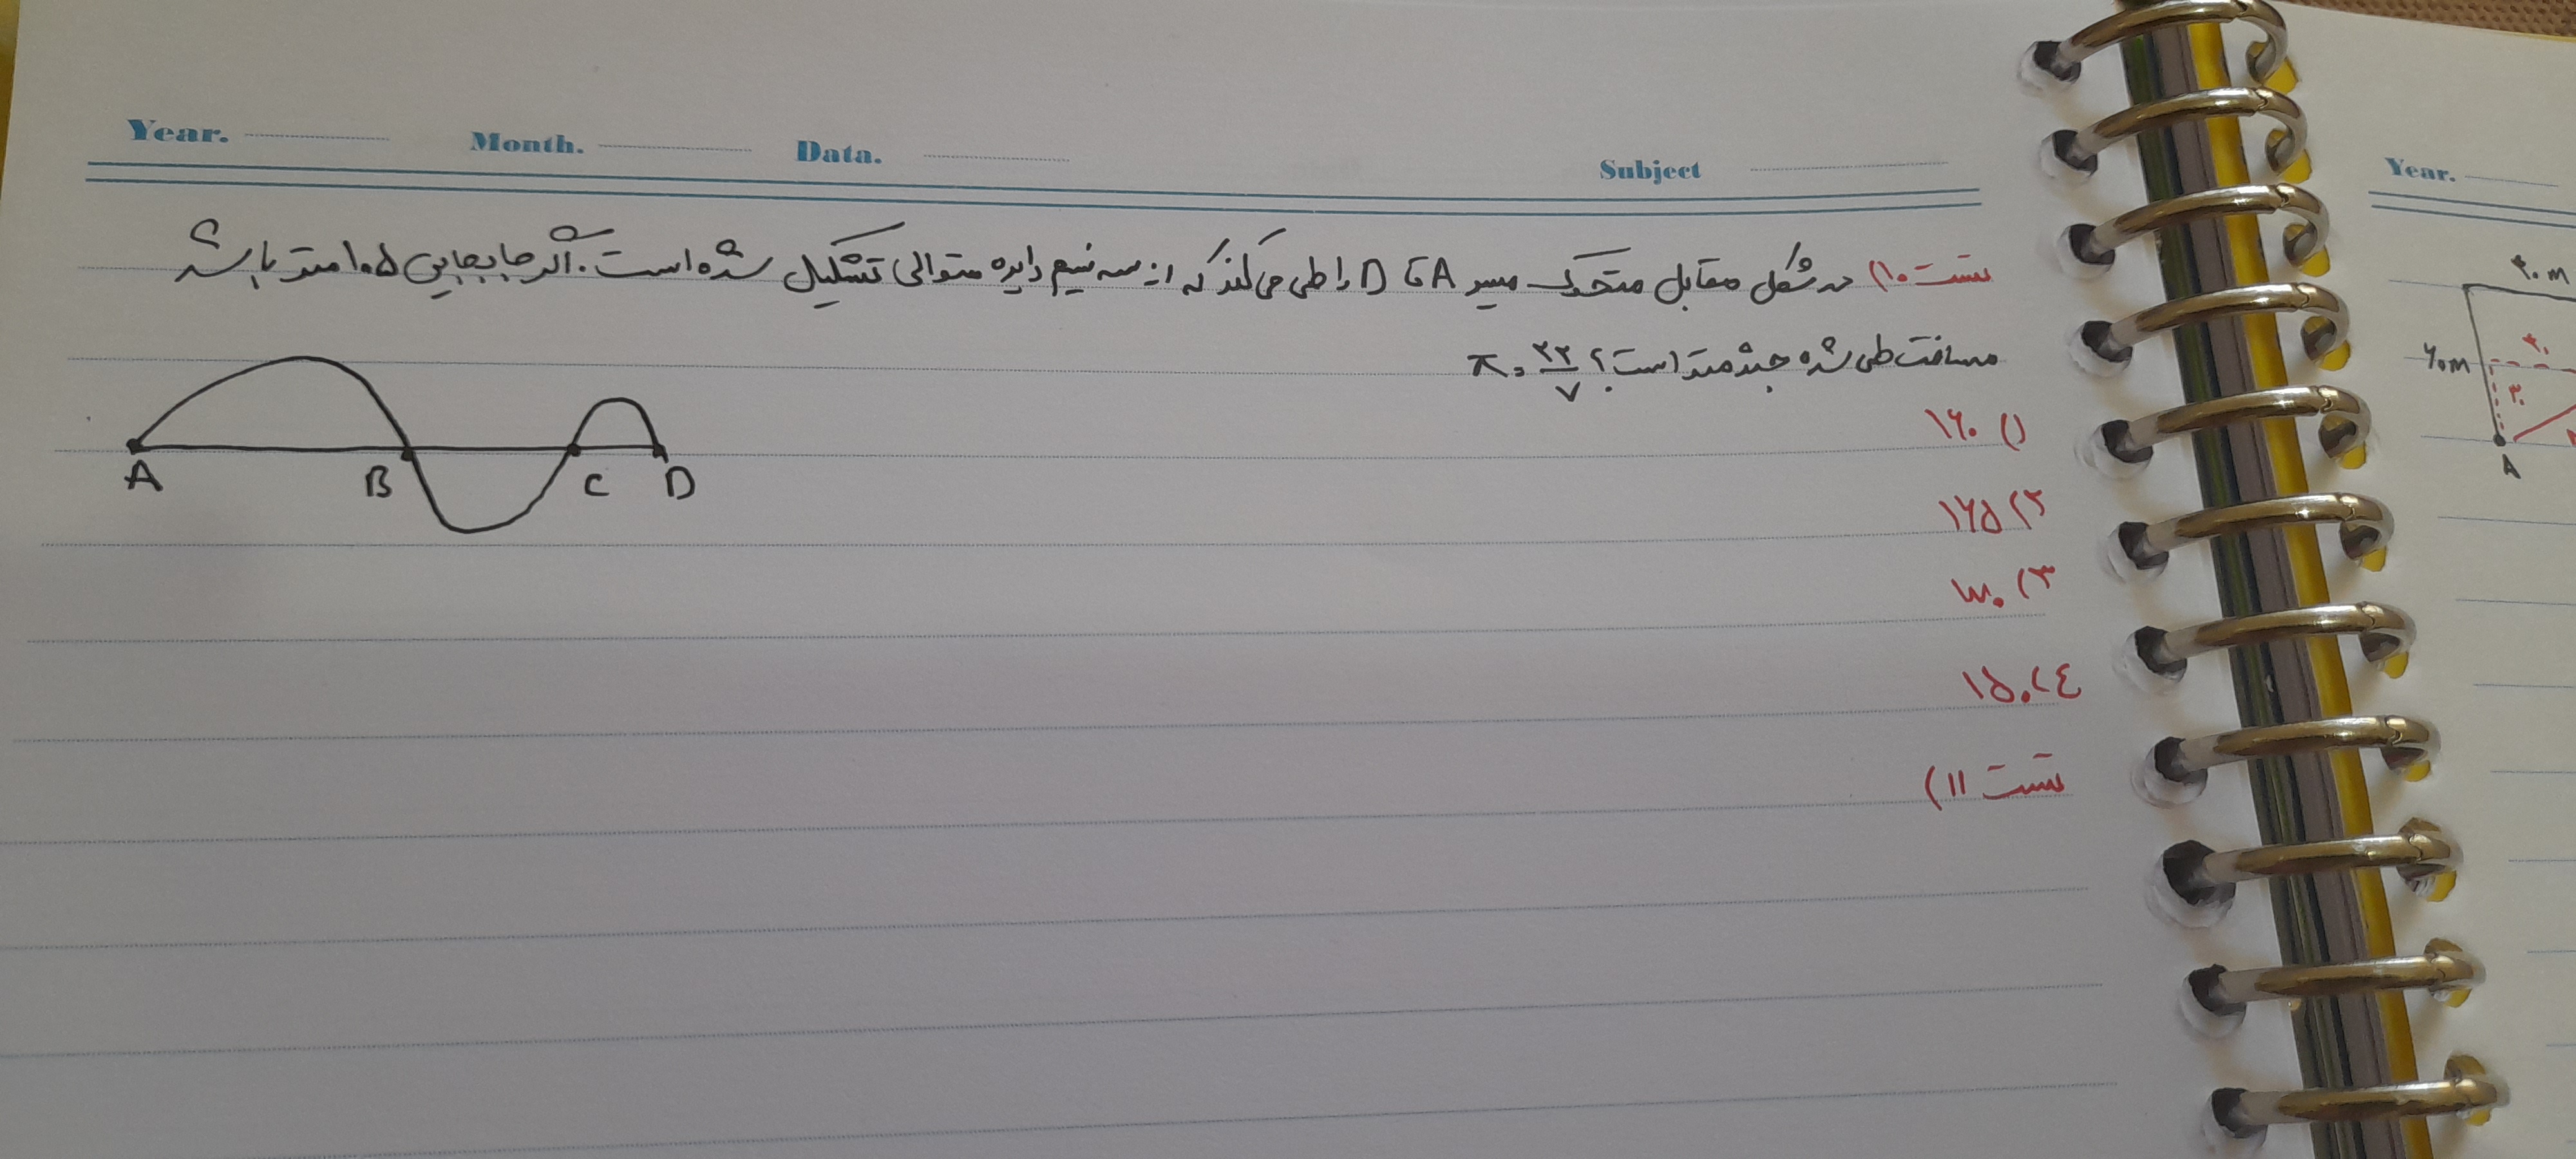 Year. Month. Data. Subject
تست ۱۰) در شکل مقابل متحرک مسیر A تا D را طی می‌کند که از سه نیم دایره متوالی تشکیل شده است. اگر جابجایی ۱۰۵ متر باشد
مسافت طی شده چند متر است؟ π = ۲۲/۷
۱) ۱۶۰
۲) ۱۶۵
۳)
۴) ۱۵۰
A B C D
تست ۱۱)
Year.
۳۰m
۶۰m
۳۰
۳۰
A